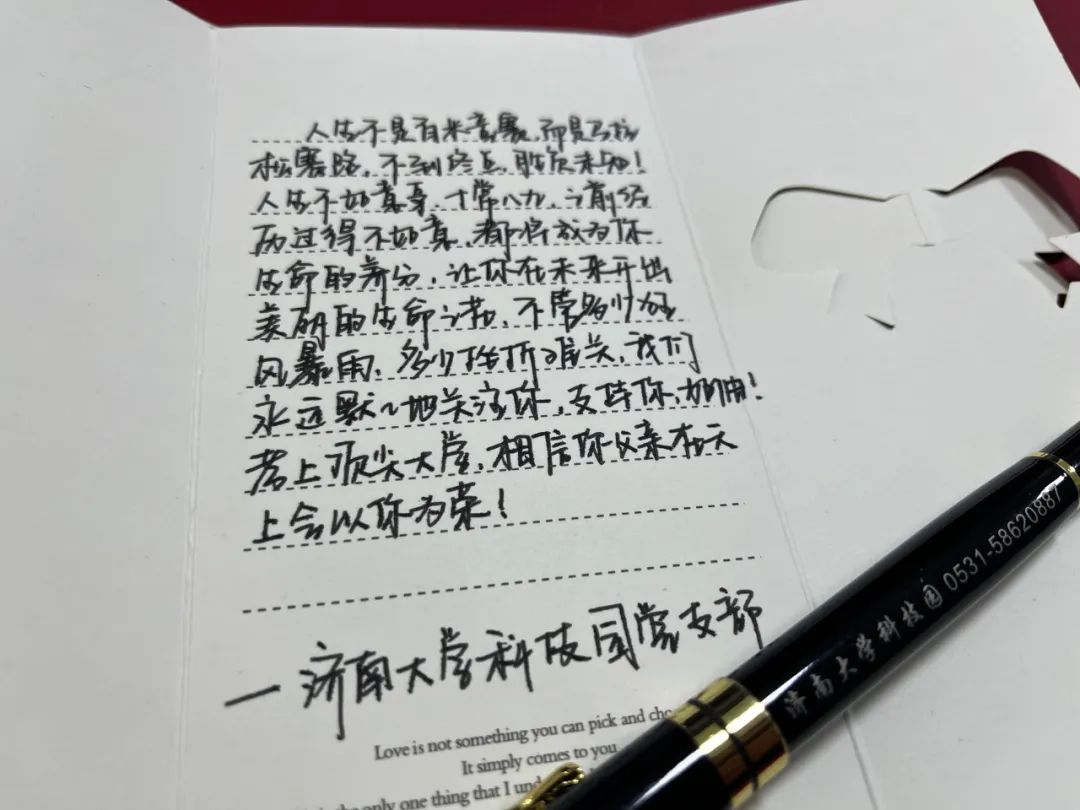 人生不是百米竞赛,而是马拉
松赛跑,不到终点,胜负未知!
人生不如意事,十常八九,之前经
历过得不如意,都将成为你
生命的养分,让你在未来开出
美丽的生命之花,不管多少狂
风暴雨,多少挫折难关,我们
永远默々地关注你,支持你,加油!
考上顶尖大学,相信你父亲在天
上会以你为荣!
—济南大学科技园党支部
Love is not something you can pick and
It simply comes to you
the only one thing that I
济南大学科技园 0531-58620887